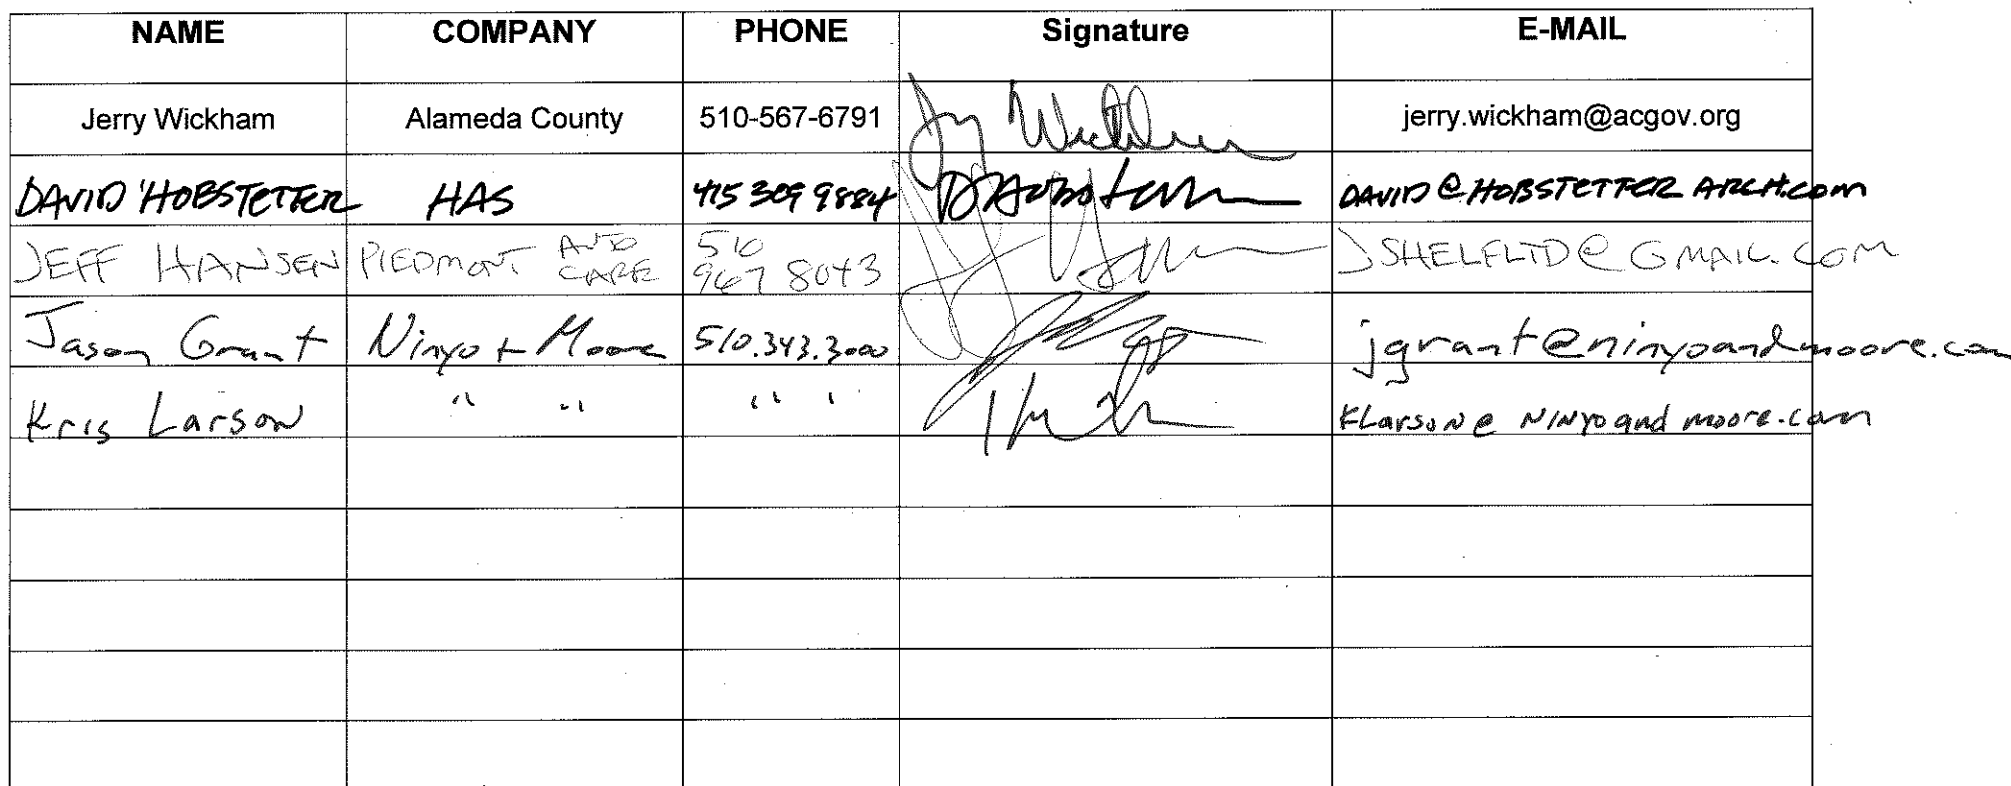 NAME COMPANY PHONE Signature E-MAIL
Jerry Wickham Alameda County 510-567-6791 Jerry Wickham jerry.wickham@acgov.org
DAVID HOBSTETTER HAS 415 309 9884 DAVID@HOBSTETTERARCH.com
JEFF HANSEN PIEDMONT AUTO CARE 510 967 8043 JSHELFLTD@GMAIL.COM
Jason Grant Ninyo + Moore 510.343.3000 jgrant@ninyoandmoore.com
Kris Larson " " " " KLarson@NINYOandmoore.com